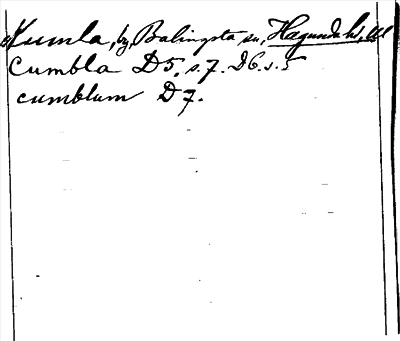 Kumla, by, Balingsta sn, Hagunda hd, Upl
Cumbla D5. s. 7. D6. s. 5
cumblum D7.